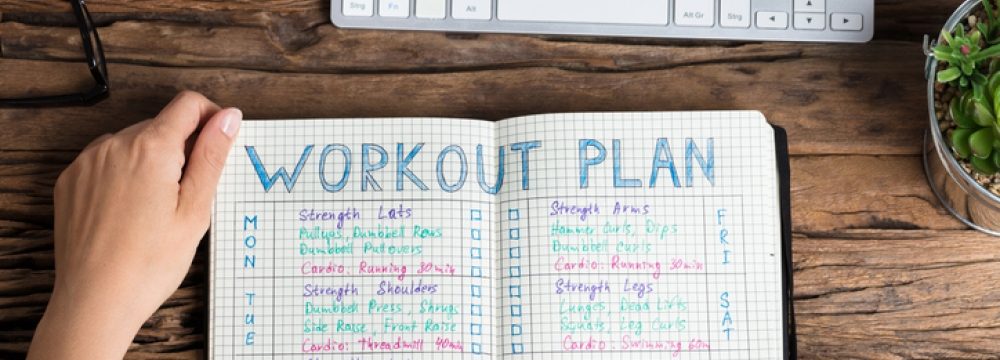 Strg
Alt
Alt Gr
Strg
WORKOUT PLAN
MON
Strength Lats
Pullups, Dumbbell Rows
Dumbbell Pullovers
Cardio: Running 30min
TUE
Strength Shoulders
Dumbbell Press, Shrugs
Side Raise, Front Raise
Cardio: Threadmill 40min
FRI
Strength Arms
Hammer Curls, Dips
Dumbbell Curls
Cardio: Running 30min
SAT
Strength Legs
Lunges, Dead Lifts
Squats, Leg Curls
Cardio: Swimming 60m